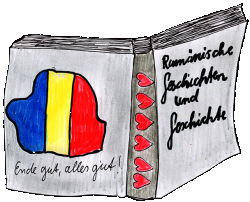 Ende gut, alles gut!
Rumänische
Geschichten
und
Geschichte